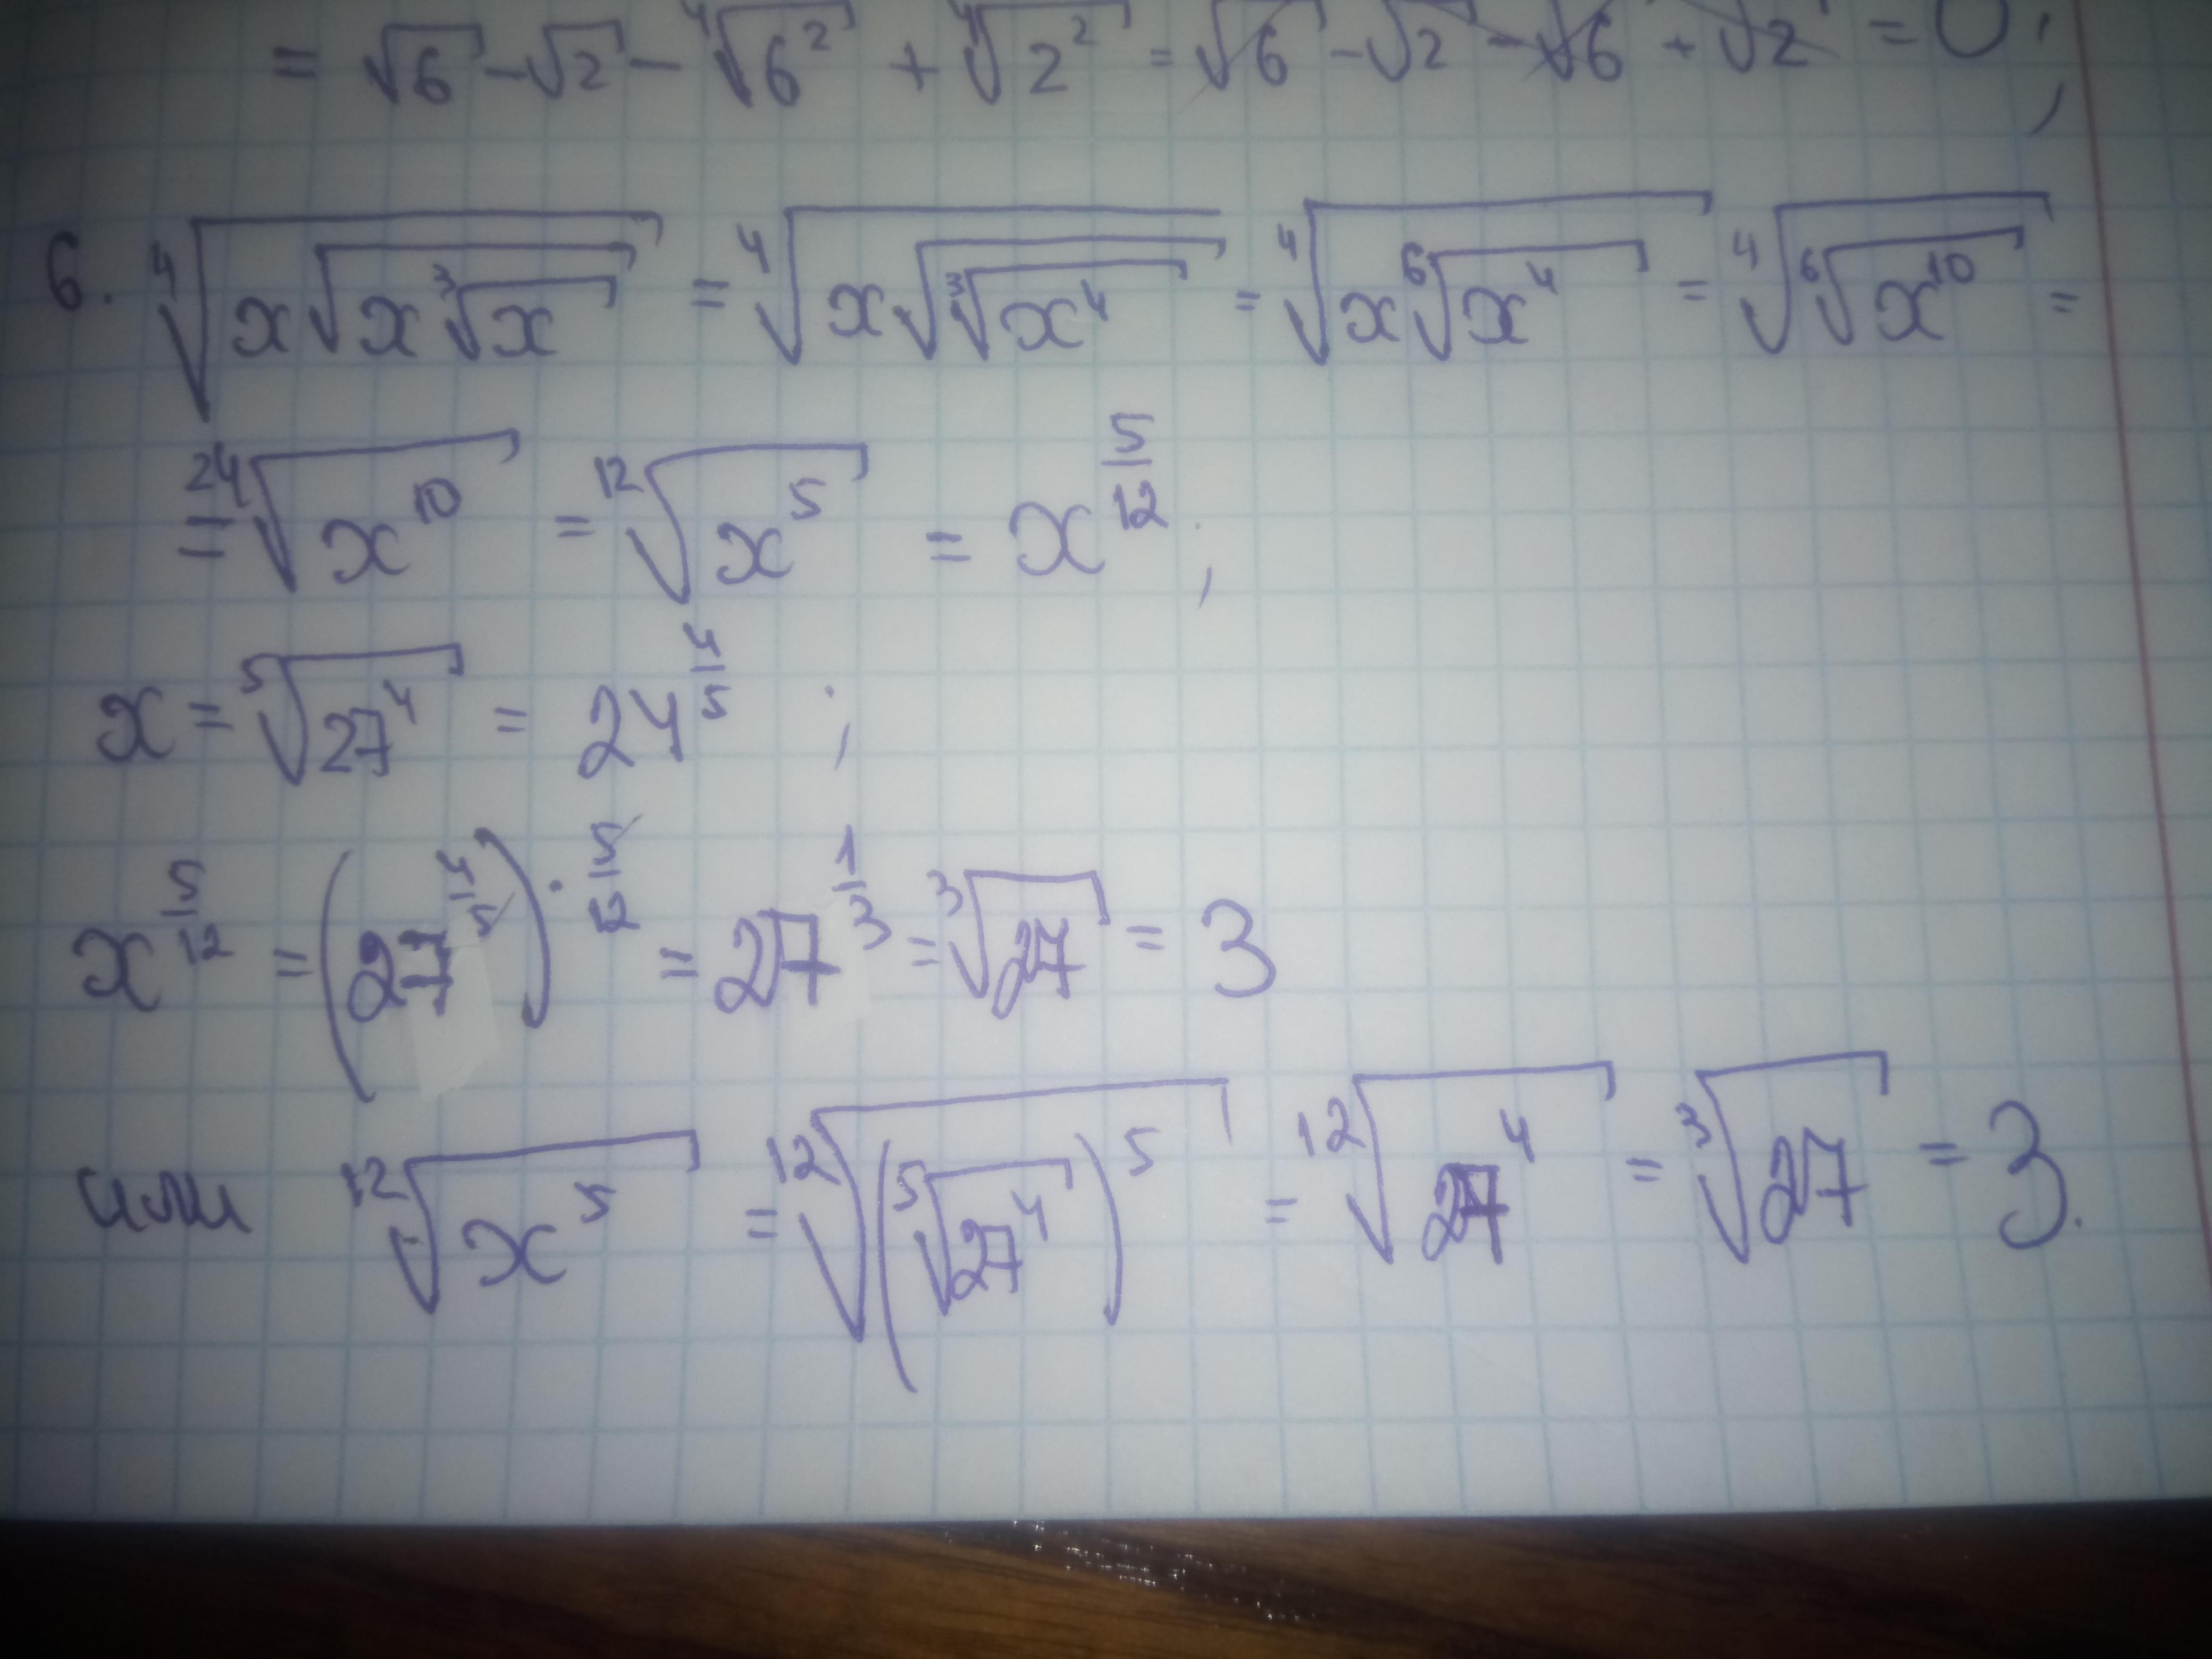 = √6 - √2 - ⁴√(6²) + ⁴√(2²) = √6 - √2 - √6 + √2 = 0;
6. ⁴√(x√(x³√x)) = ⁴√(x√(³√(x⁴))) = ⁴√(x⁶√(x⁴)) = ⁴√(⁶√(x¹⁰)) =
= ²⁴√(x¹⁰) = ¹²√(x⁵) = x^(5/12);
x = ⁵√(27⁴) = 24^(4/5);
x^(5/12) = (27^(4/5))^(·5/12) = 27^(1/3) = ³√27 = 3
или ¹²√(x⁵) = ¹²√((⁵√(27⁴))⁵) = ¹²√(27⁴) = ³√27 = 3.